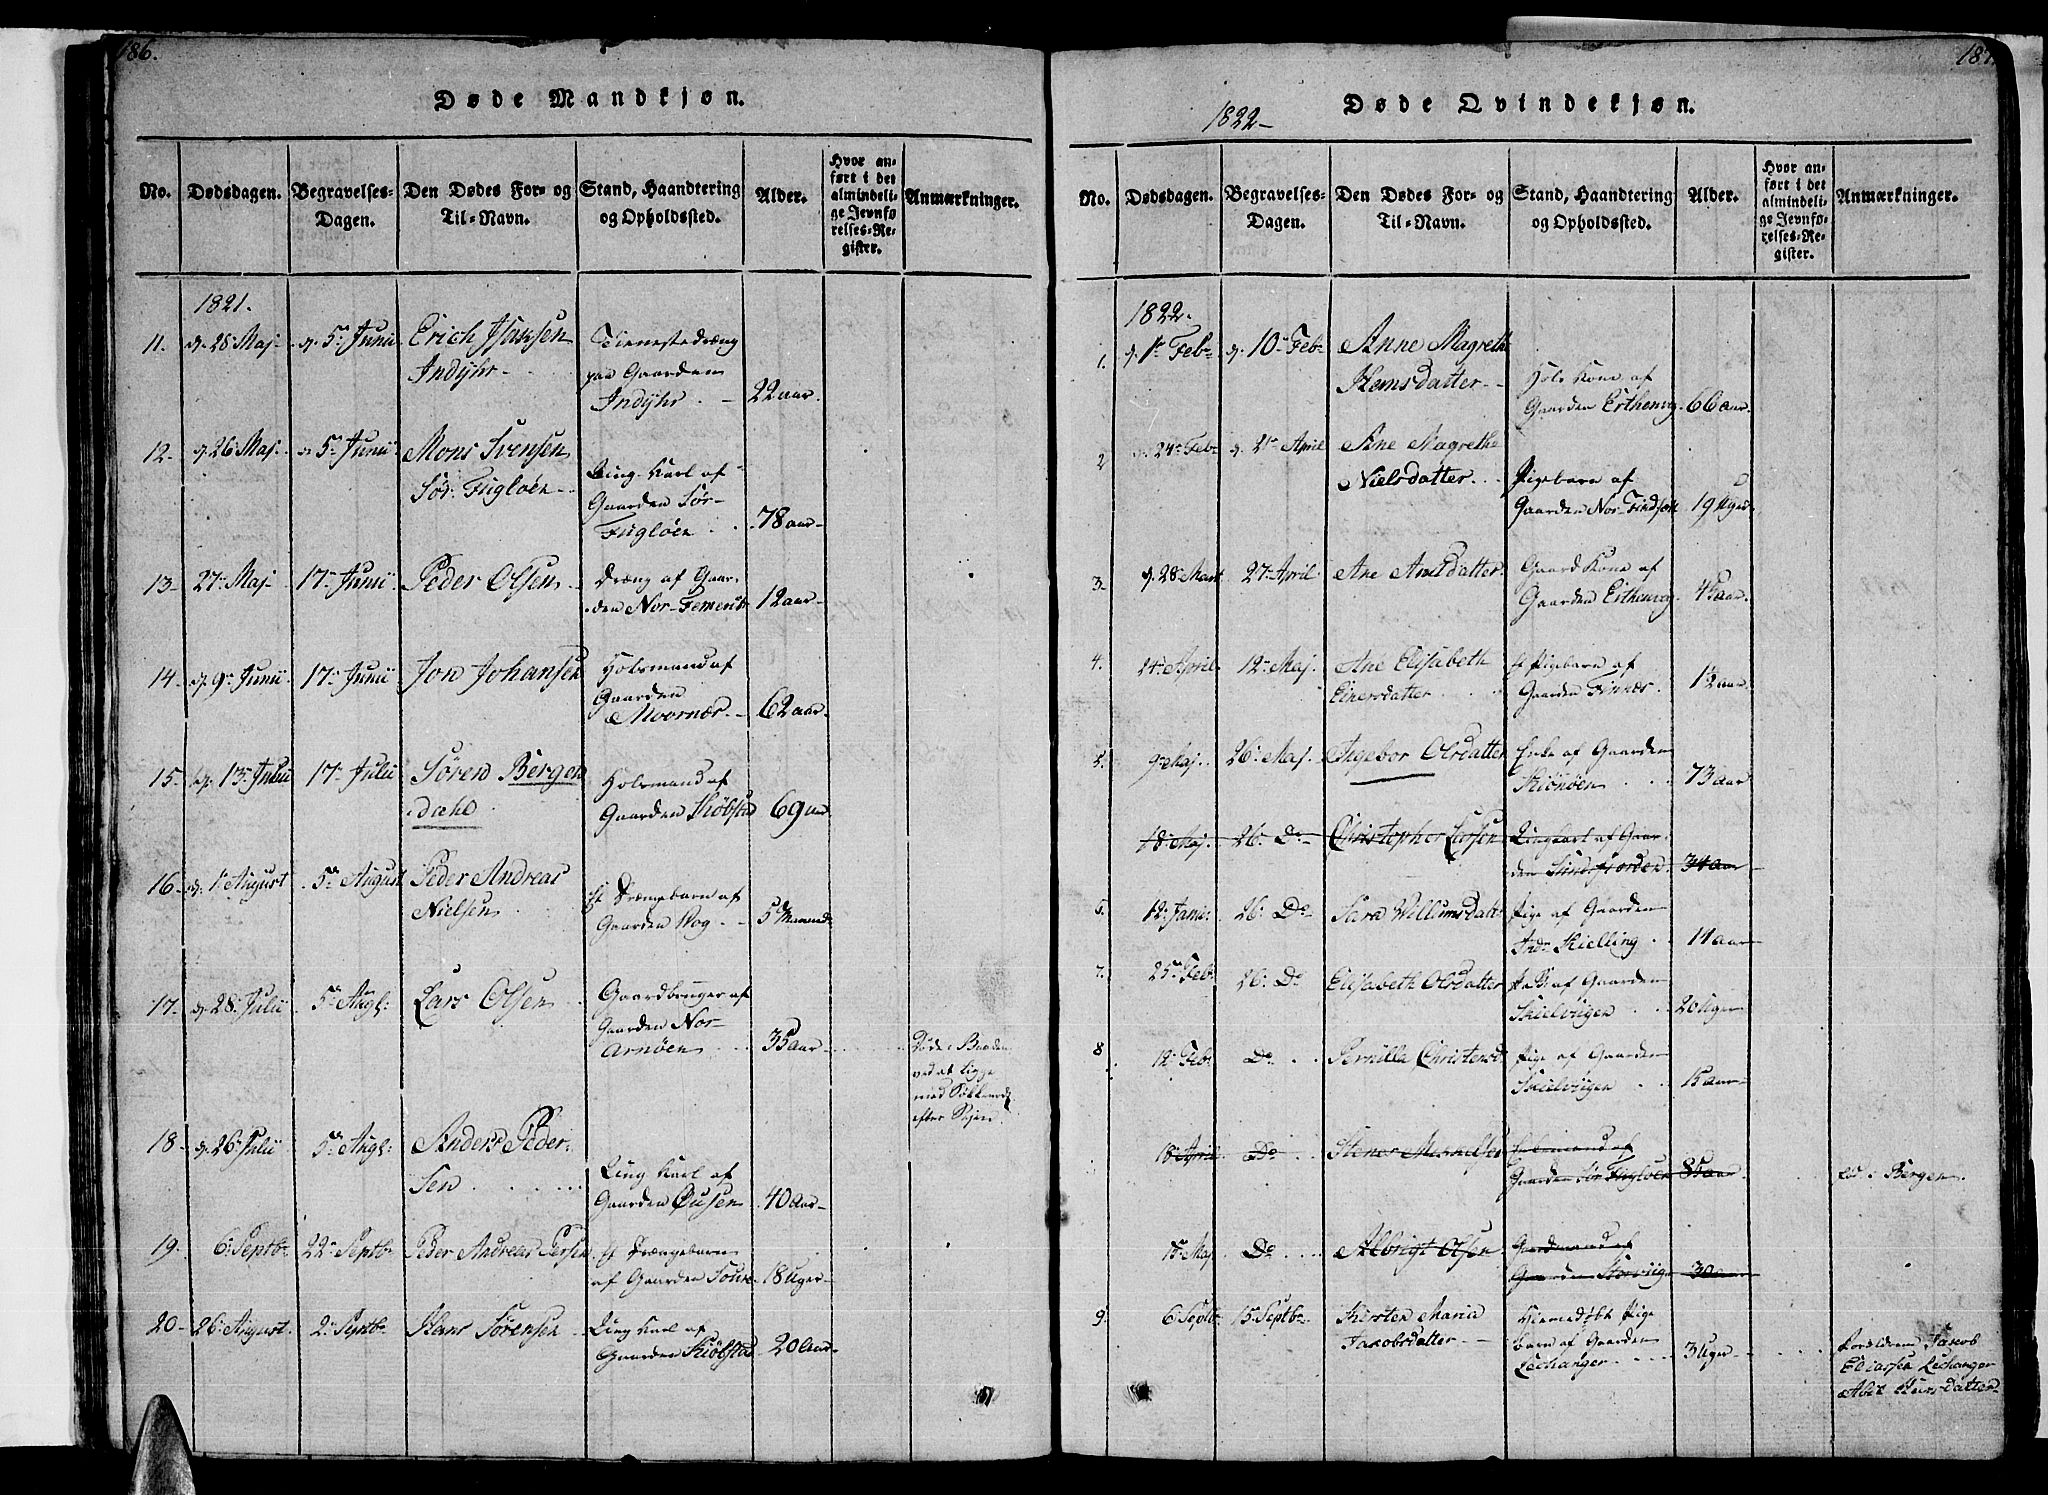 186.
Døde Mandkjøn.
No.
Dødsdagen.
Begravelses-
Dagen.
Den Dødes For- og
Til-Navn.
Stand, Haandtering
og Opholdssted.
Alder.
Hvor an-
ført i det
almindeli-
ge Jevnfø
relses-Re-
gister.
Anmærkninger.
1821.
11. d. 28 Maj d. 5 Junii Erich Hansen
Indyhr
Tienestedræng
paa Gaarden
Indyhr 22 aar.
12. d. 26 Maj. 5 Junii Mons Svensen
Sør Fugløen
Ung Karl af
Gaarden Sør-
Fugløen 78 aar
13 27 Maj 17 Junii Peder Olsen
Dræng af Gaar-
den Nor- 12 aar
14 d. 9 Junii 17 Junii Jon Johansen
Holsmand af
Gaarden
Moornær 62 aar
15 13 Julii 17 Julii Søren Bergen
dahl
Holsmand af
Gaarden Kiøbstad 69 aar
16 d. 1 August 5 August Peder Andreas
Nielsen
et Drængebarn af
Gaarden Rog 5 Maaned
17 d. 28 Julii 5 Augt: Lars Olsen
Gaardbruger af
Gaarden Nor-
Arnøen 35 aar
Døde i Baaden
ved at ligge
med
efter Sejen.
18 d. 26 Julii 5 Augt: Anders Peder-
sen
Ung Karl af
Gaarden Øusen 40 Aar
19. 6 Septbr 22 Septbr Peder Andreas Persen
et Drængebarn
af Gaarden 18 Uger
20 26 August 2 Septbr Hans Sørensen
Ung Karl af
Gaarden Kiøbstad 20 Aar
187
1822
Døde Qvindekjøn.
No.
Dødsdagen.
Begravelses-
Dagen.
Den Dødes For- og
Til-Navn.
Stand, Haandtering
og Opholdssted.
Alder.
Hvor an-
ført i det
almindeli-
ge Jevnfø-
relses-Re-
gister.
Anmærkninger.
1822.
1. d. 1 Febr d. 10 Febr Anne Magrethe
Hemsdatter
Hols Kone af
Gaarden Erthenvog 66 aar
2 24 Febr d. 21 April Ane Magrethe
Nielsdatter
Pigebarn af
Gaarden Nor- 19 Uger
3. d. 28 Mart 27 April Ane Arntsdatter
Gaard Kone af
Gaarden Erthenvog 45 aar
4. 24 April 12 Maj. Ane Elisabeth
Einersdatter
et Pigebarn af
Gaarden Finnær. 1 1/2 aar
5. 9 Maj 26 Maj Ingebor Olsdatter
Enke af Gaarden
73 aar
18 Maj. 26 Do Christopher Larsen
Ungkarl af Gaar-
den Sundsfjorden 34 aar
5. 12 Janr. 26 Do Sara Willumsdatter
Pige af Gaarden
Indr Kielling 14 aar
7. 25 Feb: 26 Do Elisabeth Olsdatter
PB. af Gaarden
Skielviigen 20 Uger
8 12 Feb: Do Pernilla Christensd
Pige af Gaarden
Skielviigen 15 aar
18 April Do
af
Gaarden Sør Fugløen 85 aar.
Død i Bergen.
15 Maj Do Albrigt Olsen
Gaardmand af
Gaarden Storviig 30 aar
9. 6 Septb 15 Septbr Kirsten Maria
Jakobsdatter
Hiemedøbt Pige
barn af Gaarden
Lechanger 3 Uger
Forældrene Jakob
Ediassen Lechanger
Abel Hansdatter